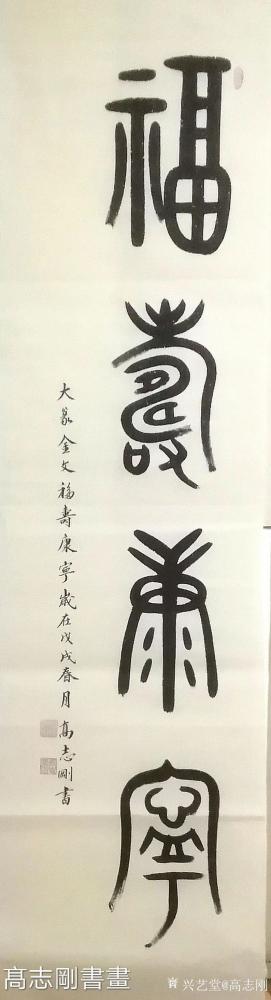 福壽康寧
大篆金文福壽康寧歲在戊戌春月高志剛書
高志剛書畫
兴艺堂@高志刚